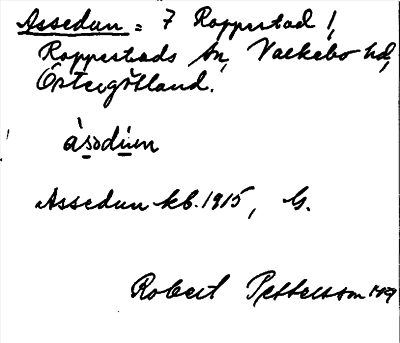 Assedun = 7 Rappestad 1,
Rappestads sn, Valkebo hd,
Östergötland.
àsodium
Assedun kb. 1915, G.
Robert Pettersson